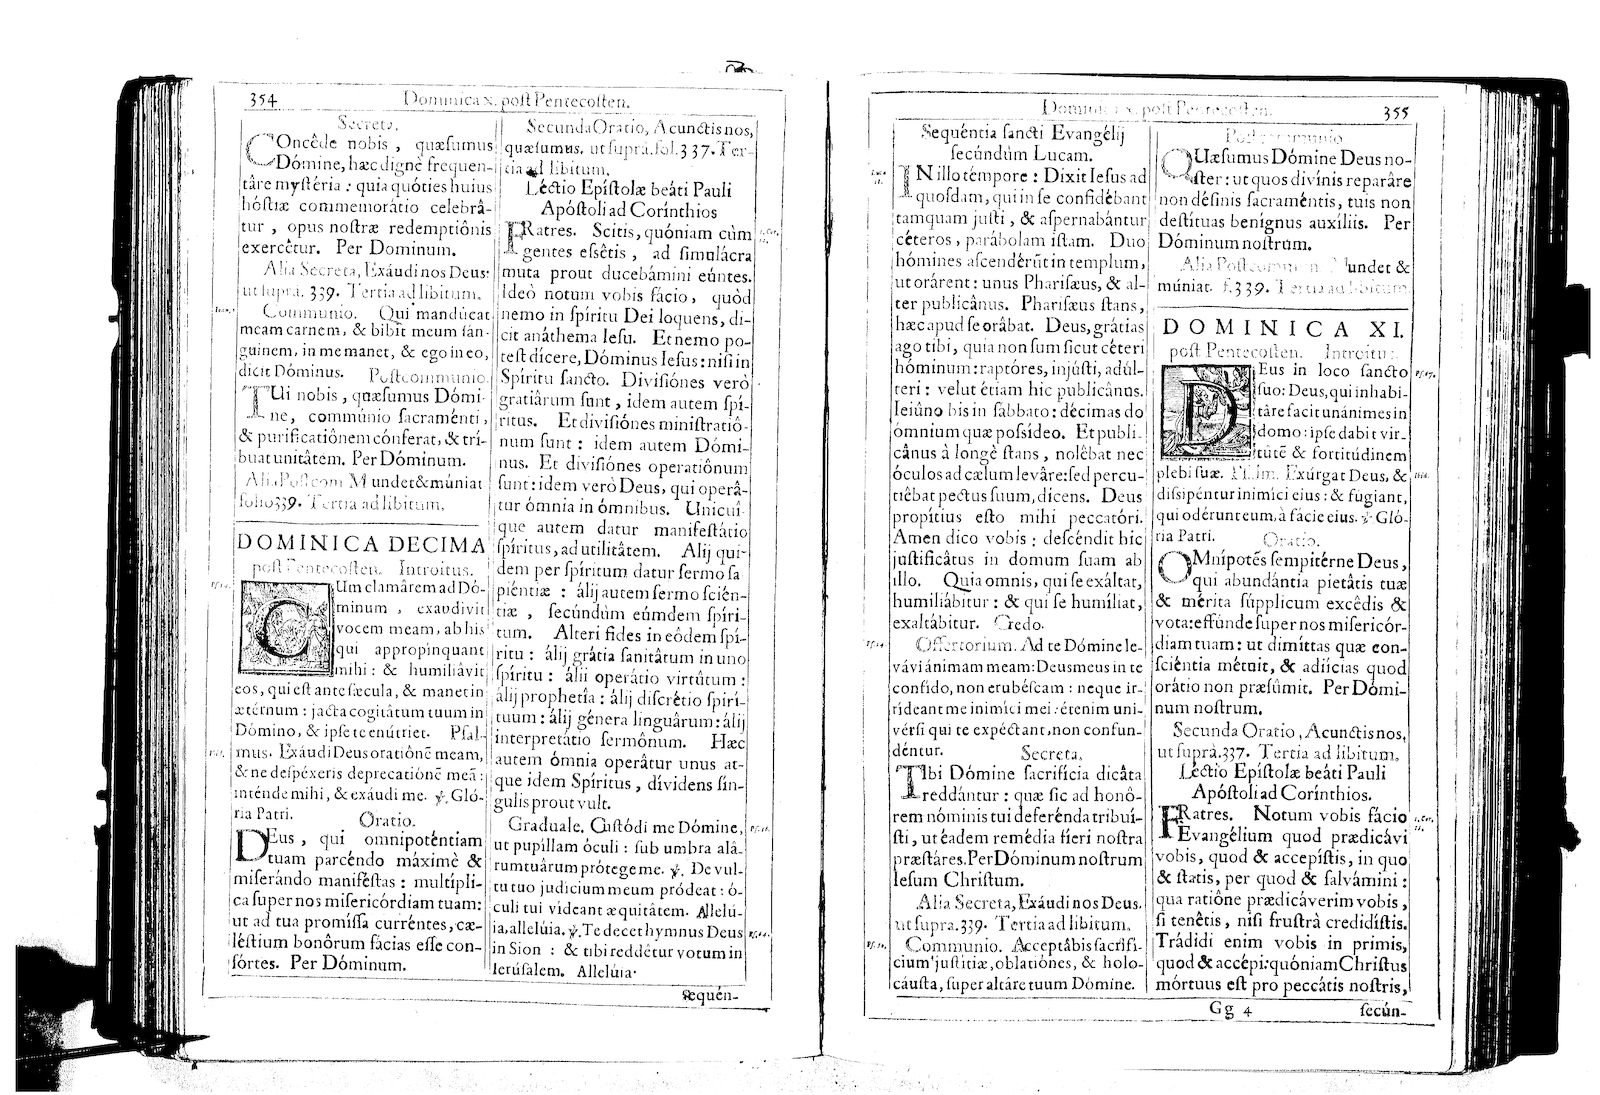 354 Dominica x. post Pentecosten.
Secreta.
COncêde nobis, quæsumus
Dómine, hæc dignè frequen-
târe mystéria: quia quóties huius
hóstiæ commemorátio celebrâ-
tur, opus nostræ redemptiônis
exercêtur. Per Dominum.
Alia Secreta, Exáudi nos Deus:
ut suprà. 339. Tertia ad libitum.
Communio. Qui mandúcat
meam carnem, & bibit meum sán-
guinem, in me manet, & ego in eo,
dicit Dóminus. Postcommunio.
TUi nobis, quæsumus Dómi-
ne, commúnio sacraménti,
& purificatiônem cónferat, & trí-
buat unitâtem. Per Dóminum.
Alia Postcom Mundet & múniat
folio 339. Tertia ad libitum.
DOMINICA DECIMA
post Pentecosten. Introitus.
CUm clamârem ad Dó-
minum, exaudivit
vocem meam, ab his
qui appropinquant
mihi: & humiliâvit
eos, qui est ante sæcula, & manet in
ætérnum: jacta cogitâtum tuum in
Dómino, & ipse te enútriet. Psal-
mus. Exáudi Deus oratiónē meam,
& ne despéxeris deprecatiônē meā:
inténde mihi, & exáudi me. ℣. Gló-
ria Patri. Oratio.
DEus, qui omnipoténtiam
tuam parcéndo máximè &
miserándo maniféstas: multípli-
ca super nos misericórdiam tuam:
ut ad tua promíssa curréntes, cæ-
léstium bonôrum fácias esse con-
sórtes. Per Dóminum.
Secunda Oratio, A cunctis nos,
quæsumus. ut suprà. fol. 337. Ter-
tia ad libitum.
Léctio Epístolæ beáti Pauli
Apóstoli ad Corínthios
FRatres. Scitis, quóniam cùm
gentes essêtis, ad simulácra
muta prout ducebámini eúntes.
Ideò notum vobis fácio, quòd
nemo in spíritu Dei loquens, di-
cit anáthema Iesu. Et nemo po-
test dícere, Dóminus Iesus: nisi in
Spíritu sancto. Divisiónes verò
gratiârum sunt, idem autem spí-
ritus. Et divisiónes ministratiô-
num sunt: idem autem Dómi-
nus. Et divisiónes operatiônum
sunt: idem verò Deus, qui operâ-
tur ómnia in ómnibus. Unicuí-
que autem datur manifestátio
spíritus, ad utilitâtem. Alij qui-
dem per spíritum datur sermo sa
piéntiæ: álij autem sermo scién-
tiæ, secúndùm eúmdem spíri-
tum. Alteri fides in eôdem spí-
ritu: álij grátia sanitâtum in uno
spíritu: álii operátio virtûtum:
álij prophetîa: álij discrêtio spirí-
tuum: álij génera linguârum: álij
interpretátio sermônum. Hæc
autem ómnia operâtur unus at-
que idem Spíritus, dívidens sín-
gulis prout vult.
Graduale. Custódi me Dómine,
ut pupíllam óculi: sub umbra alá-
rum tuârum prótege me. ℣. De vul-
tu tuo judícium meum pródeat: ó-
culi tui vídeant æquitâtem. Allelú-
ia, alleluia. ℣. Te decet hymnus Deus
in Sion: & tibi reddétur votum in
Ierúsalem. Allelúia.
sequén-
Dominica x. post Pentecosten. 355
Sequéntia sancti Evangélij
secúndùm Lucam.
IN illo témpore: Dixit Iesus ad
quosdam, qui in se confidébant
tamquam justi, & aspernabántur
céteros, parábolam istam. Duo
hómines ascendérūt in templum,
ut orárent: unus Pharisæus, & al-
ter publicânus. Pharisæus stans,
hæc apud se orâbat. Deus, grátias
ago tibi, quia non sum sicut céteri
hóminum: raptóres, injústi, adúl-
teri: velut étiam hic publicânus.
Ieiûno bis in sábbato: décimas do
ómnium quæ possídeo. Et publi-
cânus à longè stans, nolêbat nec
óculos ad cælum levâre: sed percu-
tiêbat pectus suum, dicens. Deus
propítius esto mihi peccatóri.
Amen dico vobis: descéndit hic
justificâtus in domum suam ab
illo. Quia omnis, qui se exáltat,
humiliábitur: & qui se humíliat,
exaltábitur. Credo.
Offertorium. Ad te Dómine le-
vávi ánimam meam: Deus meus in te
confido, non erubéscam: neque ir-
rídeant me inimíci mei: étenim uni-
vérsi qui te expéctant, non confun-
déntur. Secreta.
TIbi Dómine sacrifícia dicâta
reddántur: quæ sic ad honô-
rem nóminis tui deferénda tribuí-
sti, ut éadem remédia fíeri nostra
præstáres. Per Dóminum nostrum
Iesum Christum.
Alia Secreta, Exáudi nos Deus.
ut supra. 339. Tertia ad libitum.
Communio. Acceptâbis sacrifi-
cium justitiæ, oblatiónes, & holo-
cáusta, super altáre tuum Dómine.
Postcommunio
QUæsumus Dómine Deus no-
ster: ut quos divínis reparâre
non désinis sacraméntis, tuis non
destituas benígnus auxíliis. Per
Dóminum nostrum.
Alia Postcommun. Mundet &
múniat. f. 339. Tertia ad libitum.
DOMINICA XI.
post Pentecosten. Introitus.
DEus in loco sancto
suo: Deus, qui inhabi-
târe facit unánimes in
domo: ipse dabit vir-
tûtē & fortitúdinem
plebi suæ. Psalm. Exúrgat Deus, &
dissipéntur inimíci eius: & fugiant,
qui odérunt eum, à fácie eius. ℣. Gló-
ria Patri. Oratio.
OMnípotēs sempitérne Deus,
qui abundántia pietâtis tuæ
& mérita súpplicum excêdis &
vota: effúnde super nos misericór-
diam tuam: ut dimíttas quæ con-
sciéntia métuit, & adíicias quod
orátio non præsûmit. Per Dómi-
num nostrum.
Secunda Oratio, A cunctis nos,
ut suprà. 337. Tertia ad libitum.
Léctio Epístolæ beáti Pauli
Apóstoli ad Corínthios.
FRatres. Notum vobis fácio
Evangélium quod prædicávi
vobis, quod & accepístis, in quo
& statis, per quod & salvámini:
qua ratiône prædicáverim vobis,
si tenêtis, nisi frustrà credidístis.
Trádidi enim vobis in primis,
quod & accépi: quóniam Christus
mórtuus est pro peccátis nostris,
Gg 4 secún-